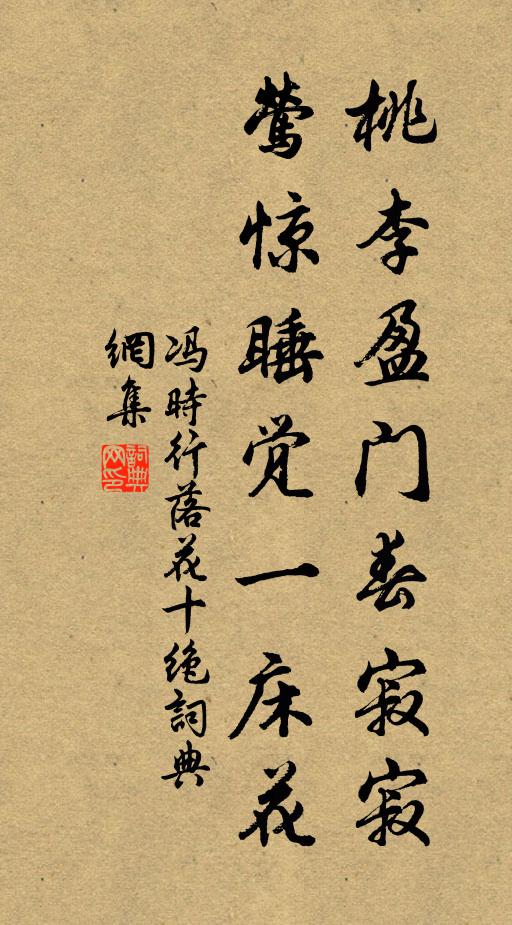 桃李盈门春寂寂
莺惊睡觉一床花
冯時行落花十绝詞典
網集
詞典
网印